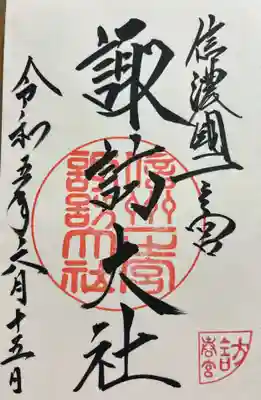 信濃國一之宮
諏訪大社
令和五年六月十五日
信州一宮
諏訪大社
諏訪
春宮